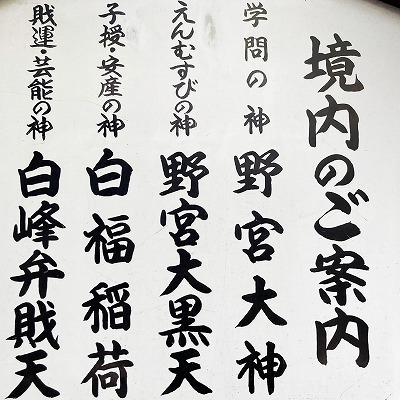 境内のご案内
学問の神
野宮大神
えんむすびの神
野宮大黒天
子授・安産の神
白福稲荷
財運・芸能の神
白峰弁財天